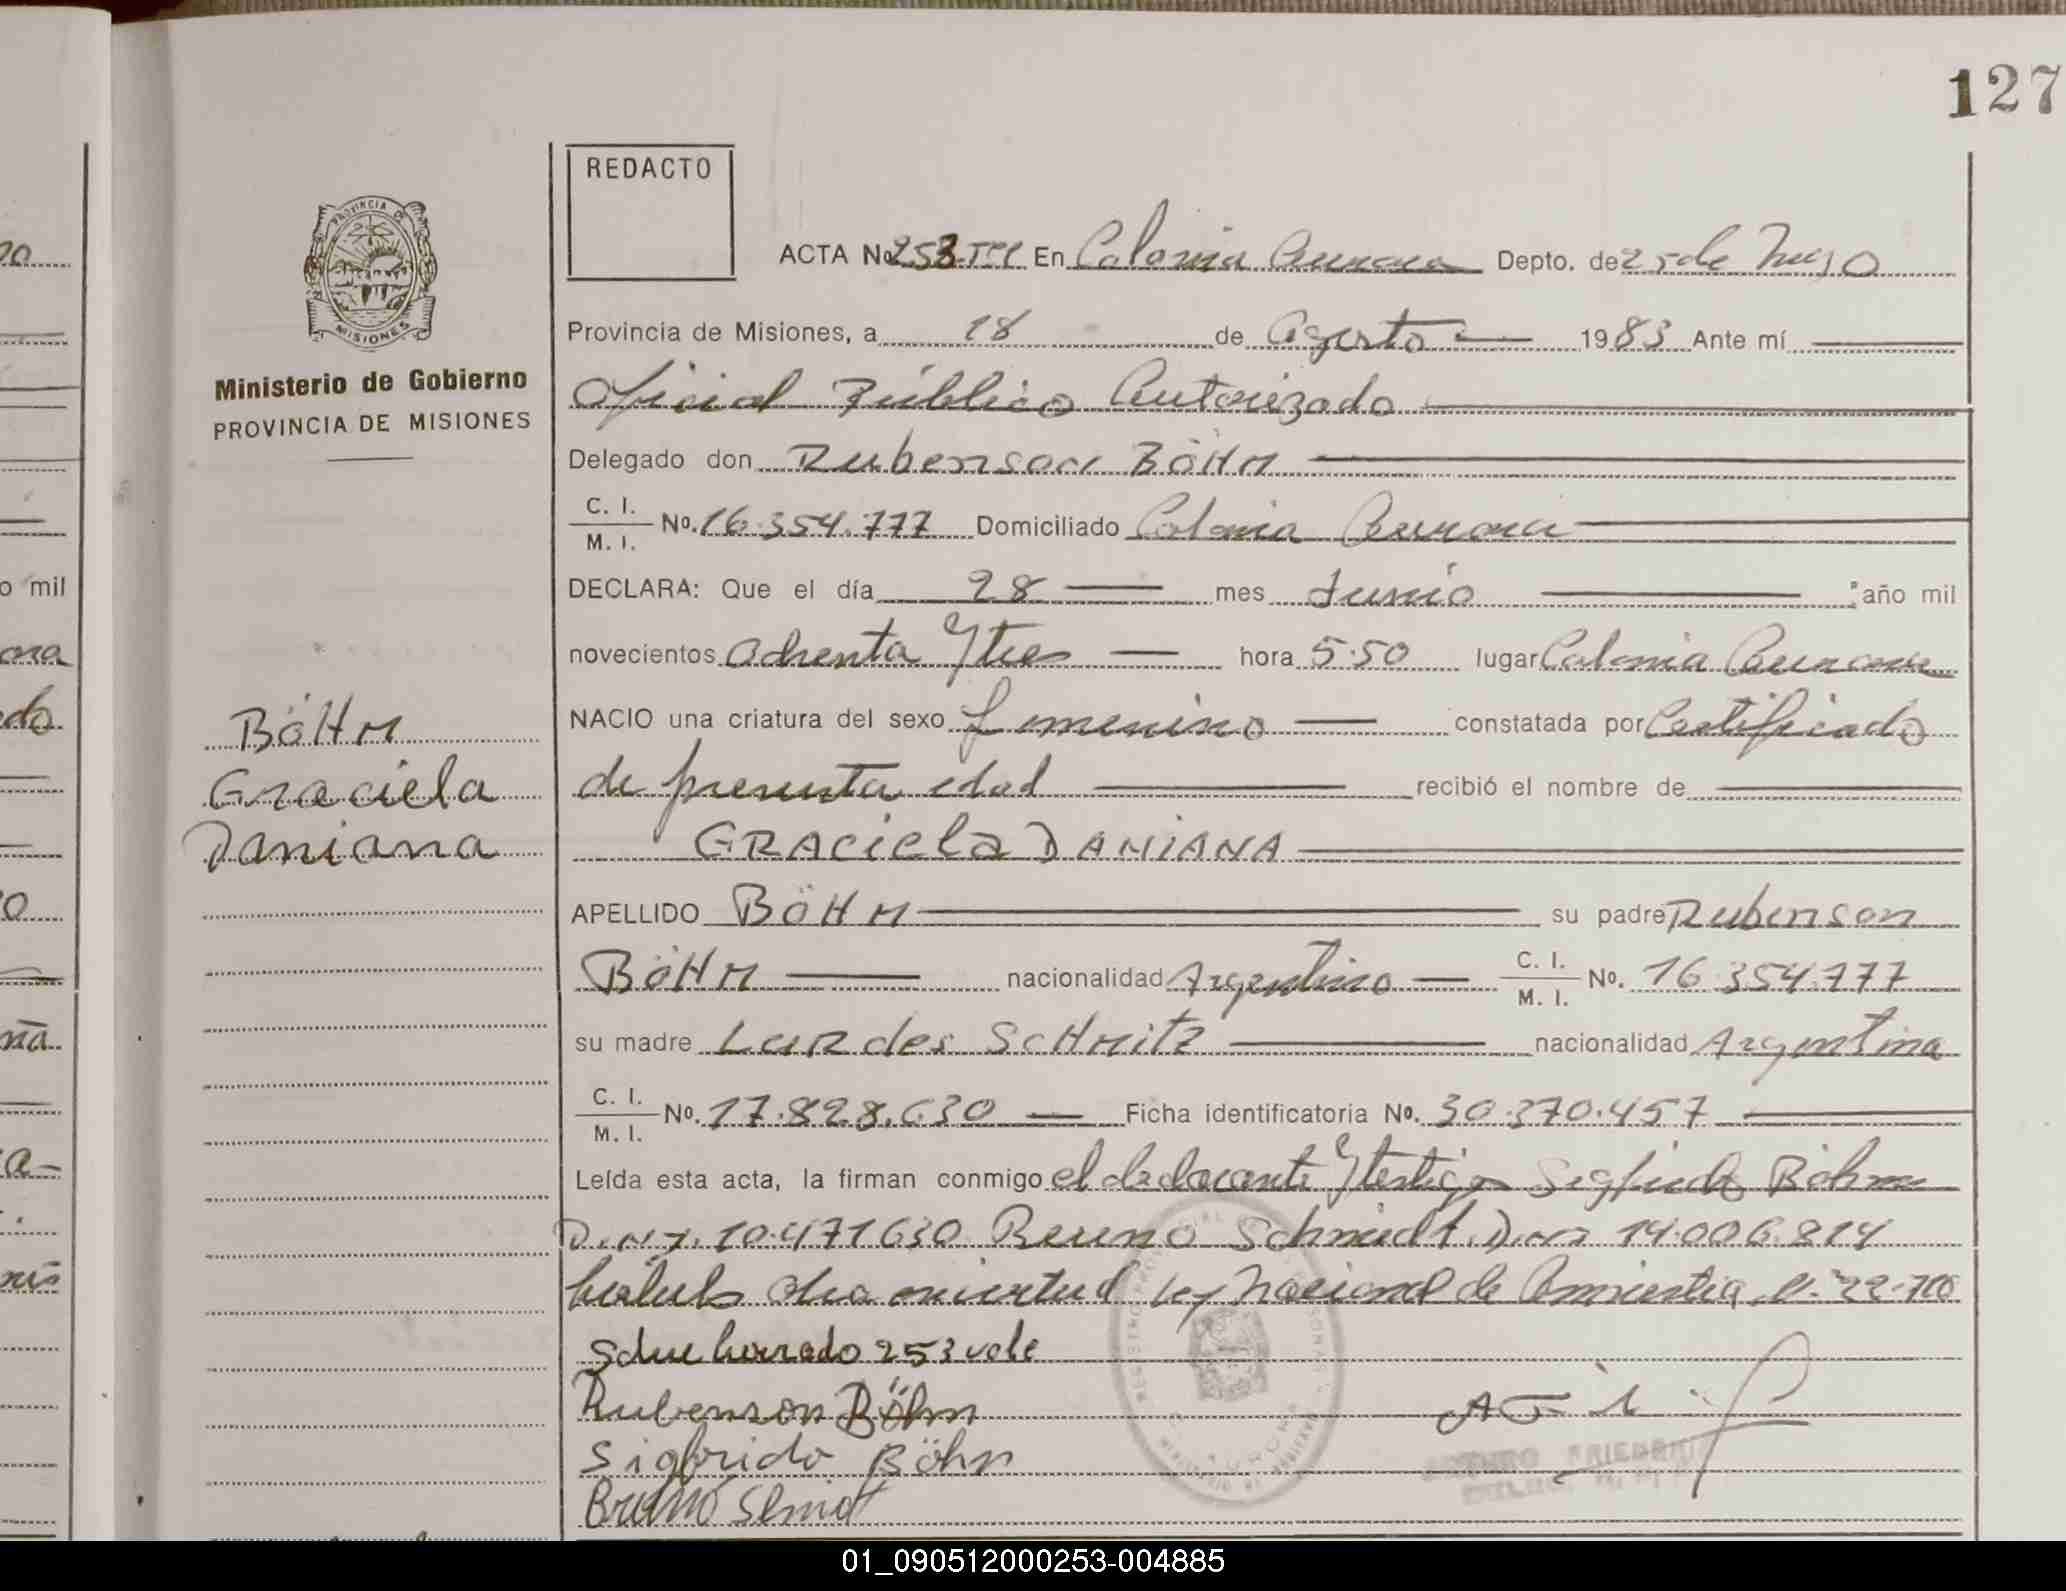 127
REDACTO
ACTA No 253 Tº I En Colonia Aurora Depto. de 25 de Mayo
Provincia de Misiones, a 18 de Agosto 1983 Ante mí
Oficial Público Autorizado
Delegado don Rubenson BöHM
C. I. M. I. No. 16.354.777 Domiciliado Colonia Aurora
DECLARA: Que el día 28 mes Junio año mil
novecientos ochenta y tres hora 5.50 lugar Colonia Aurora
NACIO una criatura del sexo femenino constatada por Certificado
de presunta edad recibió el nombre de
GRACIELA DAMIANA
APELLIDO BöHM su padre Rubenson
BöHM nacionalidad Argentino C. I. M. I. No. 16.354.777
su madre LURdes ScHMitz nacionalidad Argentina
C. I. M. I. No. 17.828.630 Ficha identificatoria No. 30.370.457
Leída esta acta, la firman conmigo el declarante y testigos Sigfrido Böhm
D.N.I. 10.471630 Bruno Schmidt D.N.I. 14.006.814
Ley Nacional de Amnistia
sobre borrado 253 vale
Rubenson Böhm
Sigfrido Böhm
Bruno Schmidt
PROVINCIA DE MISIONES
Ministerio de Gobierno
PROVINCIA DE MISIONES
BöHM
Graciela
Damiana
o mil
01_090512000253-004885